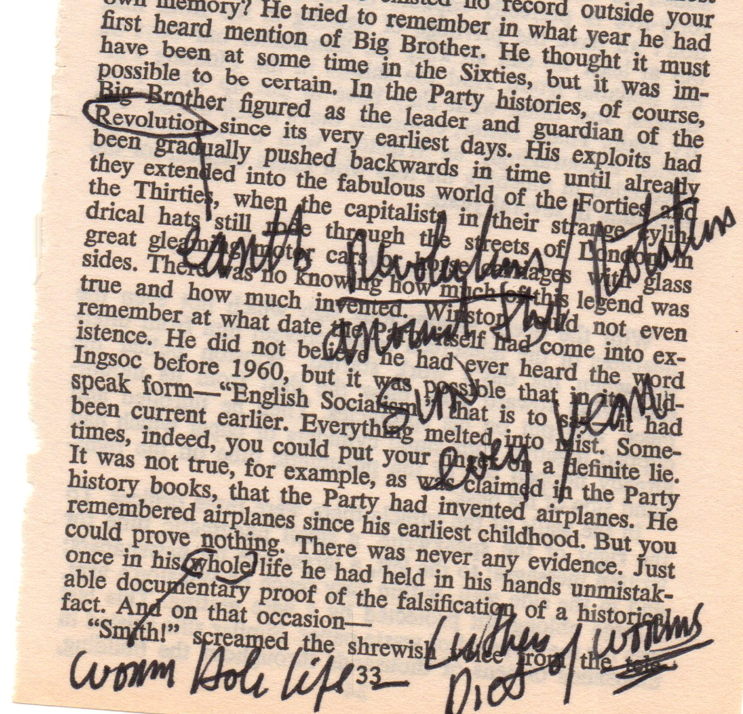 own memory? He tried to remember in what year he had
first heard mention of Big Brother. He thought it must
have been at some time in the Sixties, but it was im-
possible to be certain. In the Party histories, of course,
Big Brother figured as the leader and guardian of the
Revolution since its very earliest days. His exploits had
been gradually pushed backwards in time until already
they extended into the fabulous world of the Forties and
the Thirties, when the capitalists in their strange cylin-
drical hats still rode through the streets of London in
great gleaming motor cars or horse carriages with glass
sides. There was no knowing how much of this legend was
true and how much invented. Winston could not even
remember at what date the Party itself had come into ex-
istence. He did not believe he had ever heard the word
Ingsoc before 1960, but it was possible that in its Old-
speak form—"English Socialism," that is to say—it had
been current earlier. Everything melted into mist. Some-
times, indeed, you could put your finger on a definite lie.
It was not true, for example, as was claimed in the Party
history books, that the Party had invented airplanes. He
remembered airplanes since his earliest childhood. But you
could prove nothing. There was never any evidence. Just
once in his whole life he had held in his hands unmistak-
able documentary proof of the falsification of a historical
fact. And on that occasion—
"Smith!" screamed the shrewish voice from the tele-
33
earth Revolutions / Rotations
around the
sun
every year
Worm Hole life
Luther
Diet of Worms